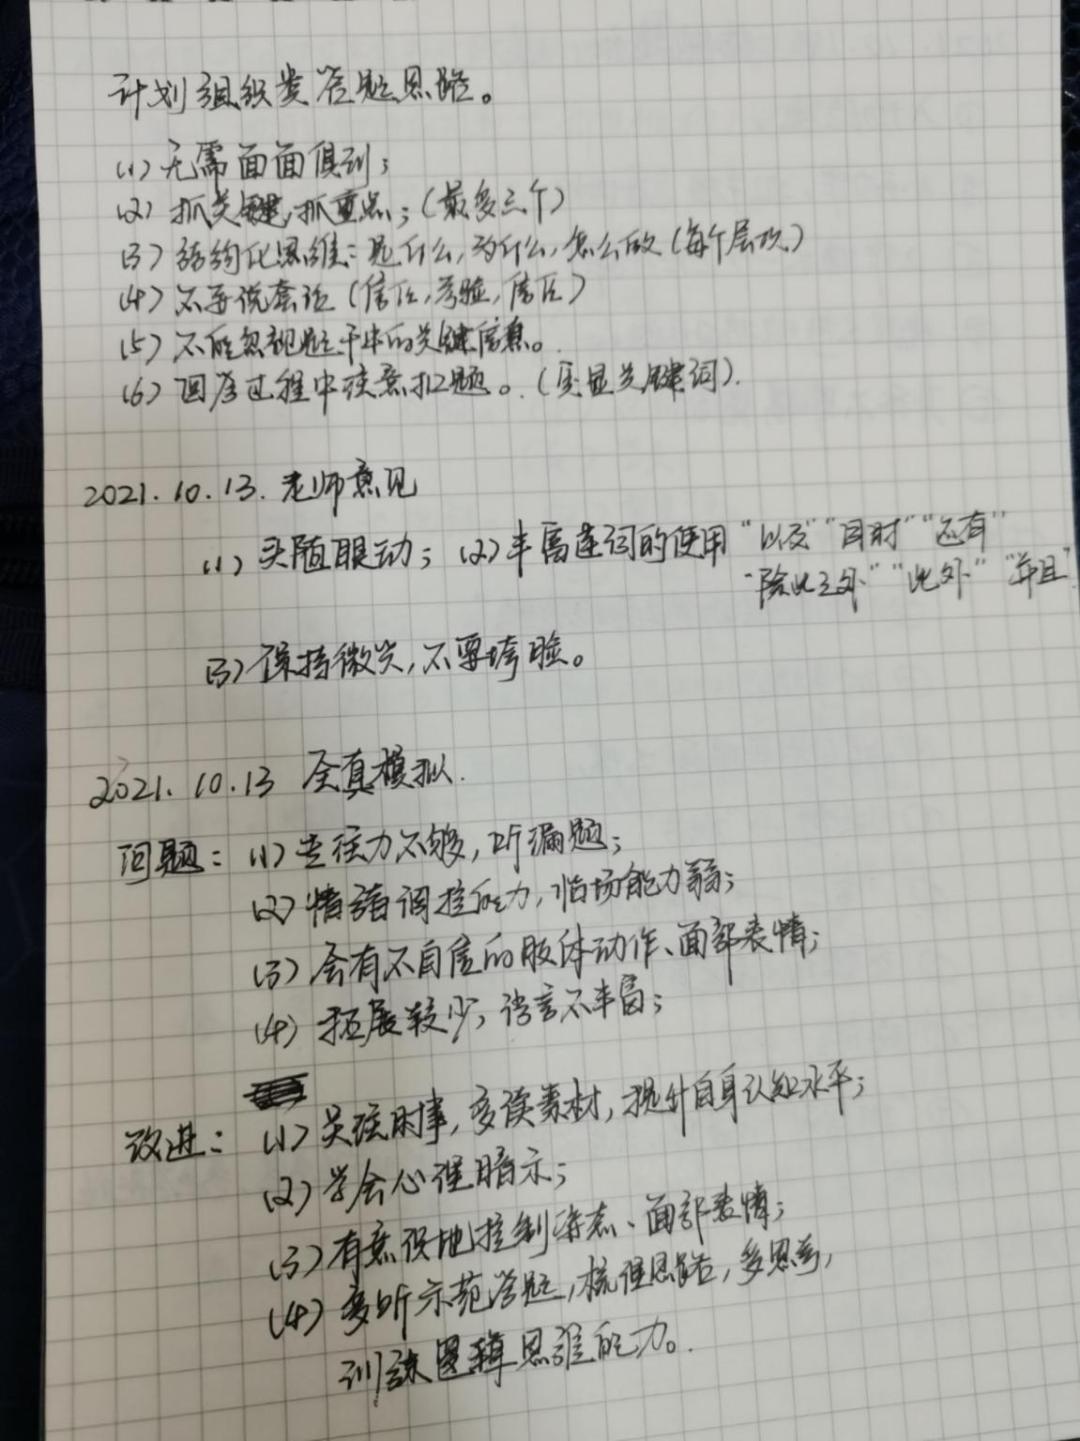 计划组织类答题思路。
(1) 无需面面俱到；
(2) 抓关键，抓重点；（最多三个）
(3) 结构化思维：是什么，为什么，怎么做（每个层次）
(4) 不要说套话（信任，考验，信任）
(5) 不能忽视题干中的关键信息。
(6) 回答过程中注意扣题。（突显关键词）.
2021.10.13. 老师意见
(1) 头随眼动；(2) 丰富连词的使用 “以及” “同时” “还有”
“除此之外” “此外” “并且”
(3) 保持微笑，不要垮脸。
2021.10.13 全真模拟.
问题：(1) 专注力不够，听漏题；
(2) 情绪调控能力，临场能力弱；
(3) 会有不自信的肢体动作、面部表情；
(4) 拓展较少，语言不丰富；
改进：(1) 关注时事，多读素材，提升自身认知水平；
(2) 学会心理暗示；
(3) 有意识地控制姿态、面部表情；
(4) 多听示范答题，梳理思路，多思考，
训练逻辑思维能力。